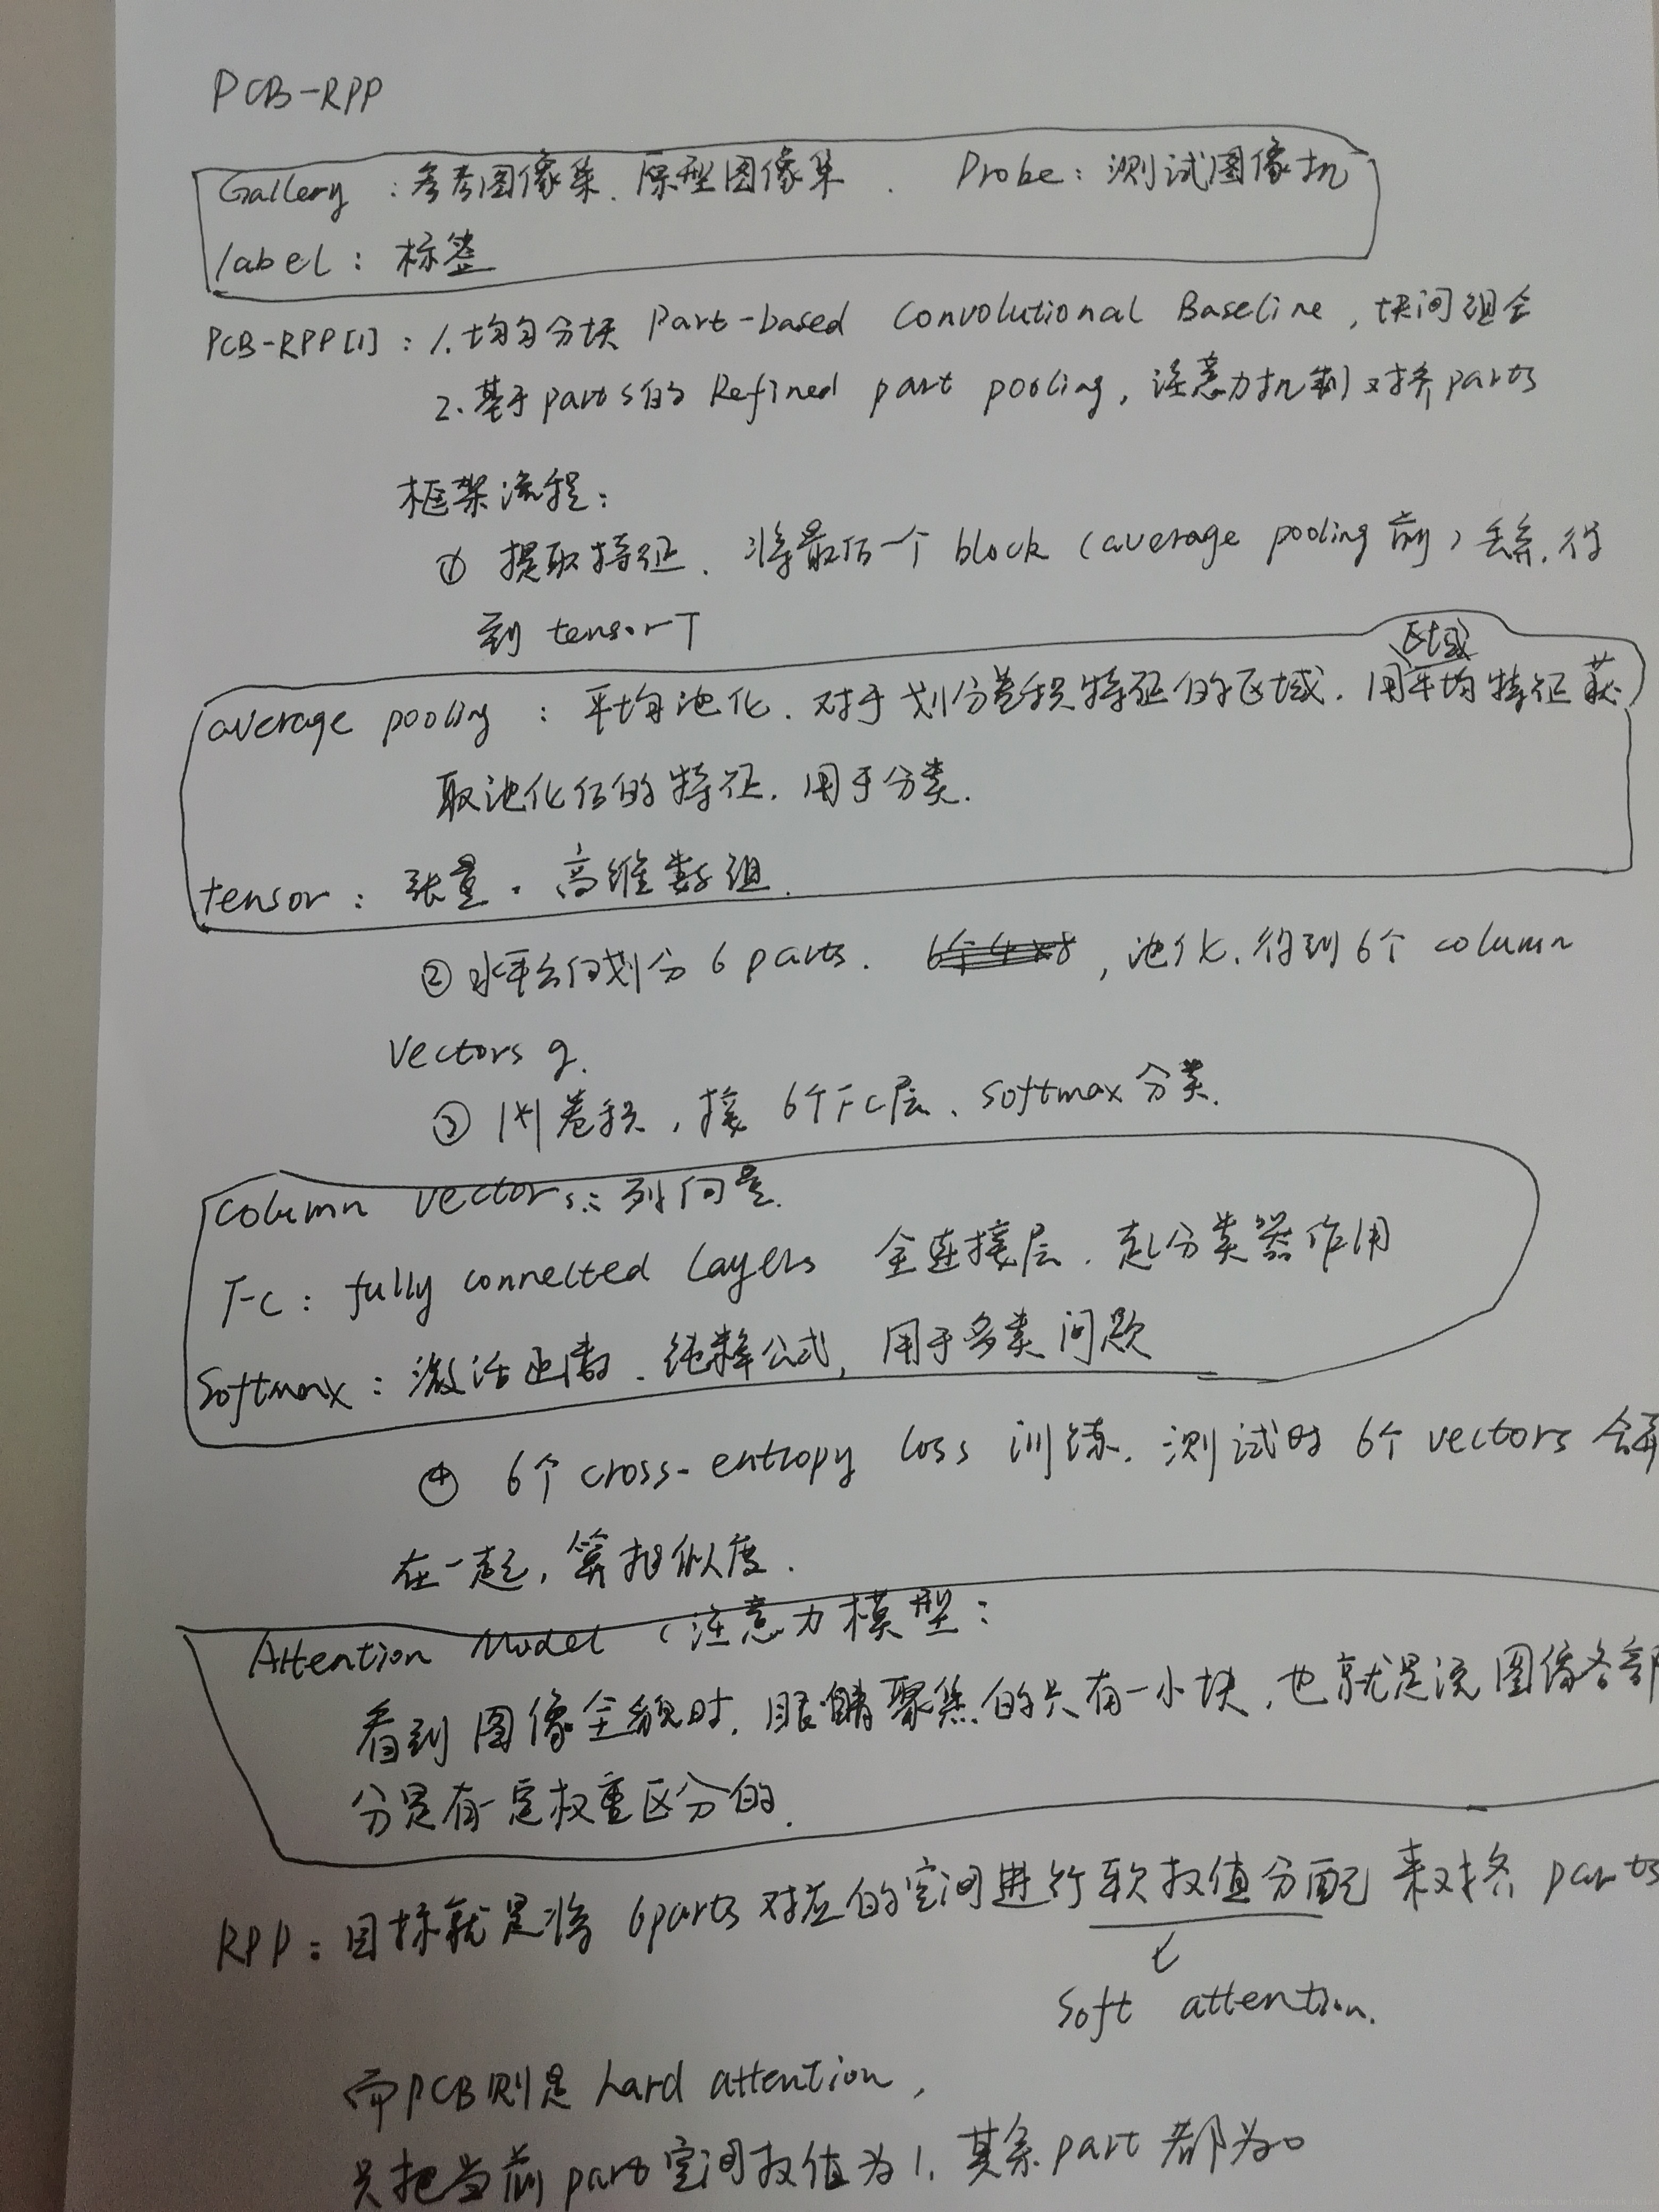 PCB-RPP
Gallery : 参考图像集、原型图像集 . Probe: 测试图像
label : 标签
PCB-RPP[1] : 1. 均匀分块 Part-based Convolutional Baseline , 块间组合
2. 基于parts的 Refined part pooling , 注意力机制对齐parts
框架流程:
① 提取特征、将最后一个 block (average pooling 前) 丢弃, 得
到 tensor T
区域
average pooling : 平均池化、对于划分卷积特征的区域, 用平均特征获
取池化后的特征, 用于分类.
tensor : 张量. 高维数组.
② 水平方向划分 6 parts. , 池化, 得到6个 column
vectors g.
③ 1×1 卷积, 接 6个FC层、softmax 分类.
column vectors: 列向量
FC : fully connected layers 全连接层, 起分类器作用
Softmax : 激活函数、纯粹公式, 用于多类问题
④ 6个cross-entropy loss 训练, 测试时 6个 vectors 合并
在一起, 算相似度.
Attention Model (注意力模型:
看到图像全貌时, 眼睛聚焦的只有一小块, 也就是说图像各部
分是有一定权重区分的.
RPP : 目标就是将 6parts 对应的空间进行软权值分配 来对齐 parts
soft attention.
而PCB则是 hard attention ,
只把当前 part 空间权值为1, 其余part 都为0